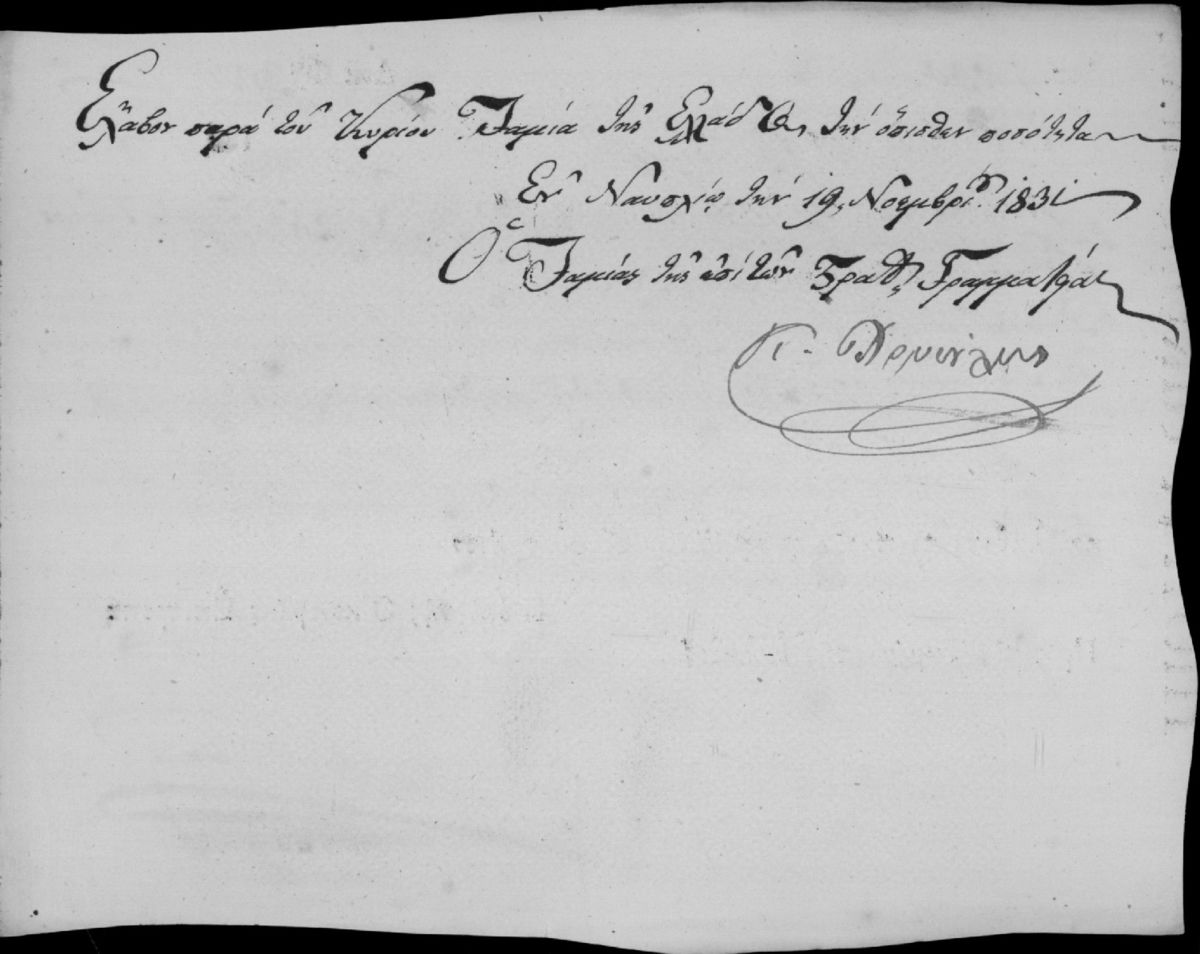 Ἔλαβον παρά τοῦ Κυρίου Ταμία τῆς Ἑλλάδος, τήν ὄπισθεν ποσότητα
Ἐν Ναυπλίῳ τήν 19, Νοεμβρί. 1831
Ὁ Ταμίας τῆς ἐπί τῶν Στρατ. Γραμματείας